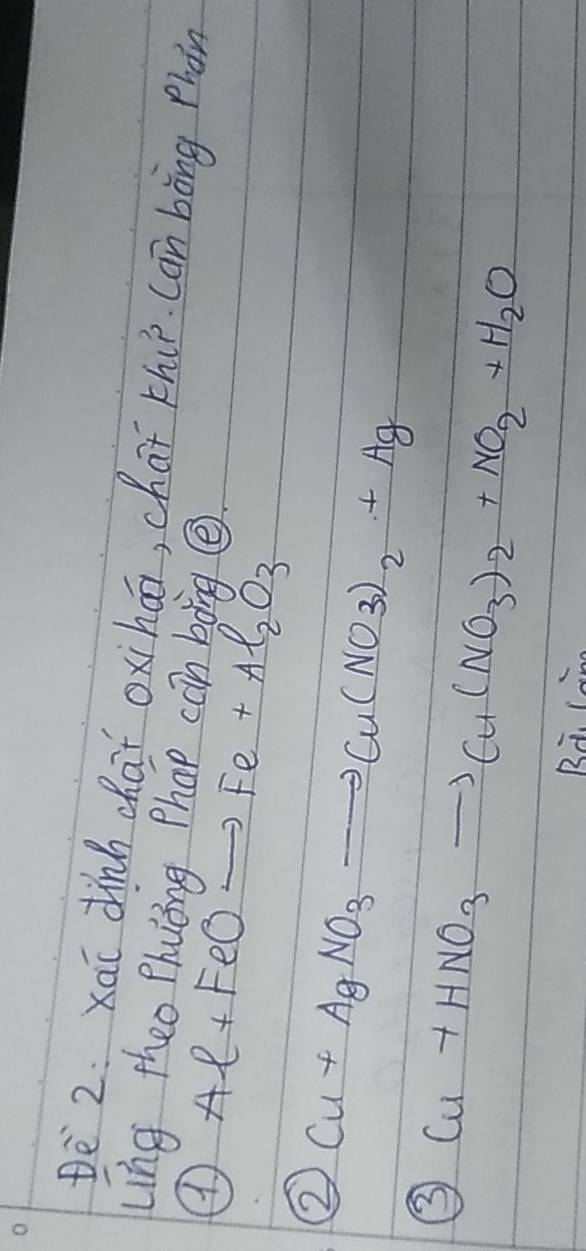 Đề 2: xác định chất oxi hoá, chất khử. Cân bằng Phản
ứng theo Phương Pháp cân bằng e.
① Al + FeO → Fe + Al₂O₃
② Cu + AgNO₃ → Cu(NO₃)₂ + Ag
③ Cu + HNO₃ → Cu(NO₃)₂ + NO₂ + H₂O
Bài làm